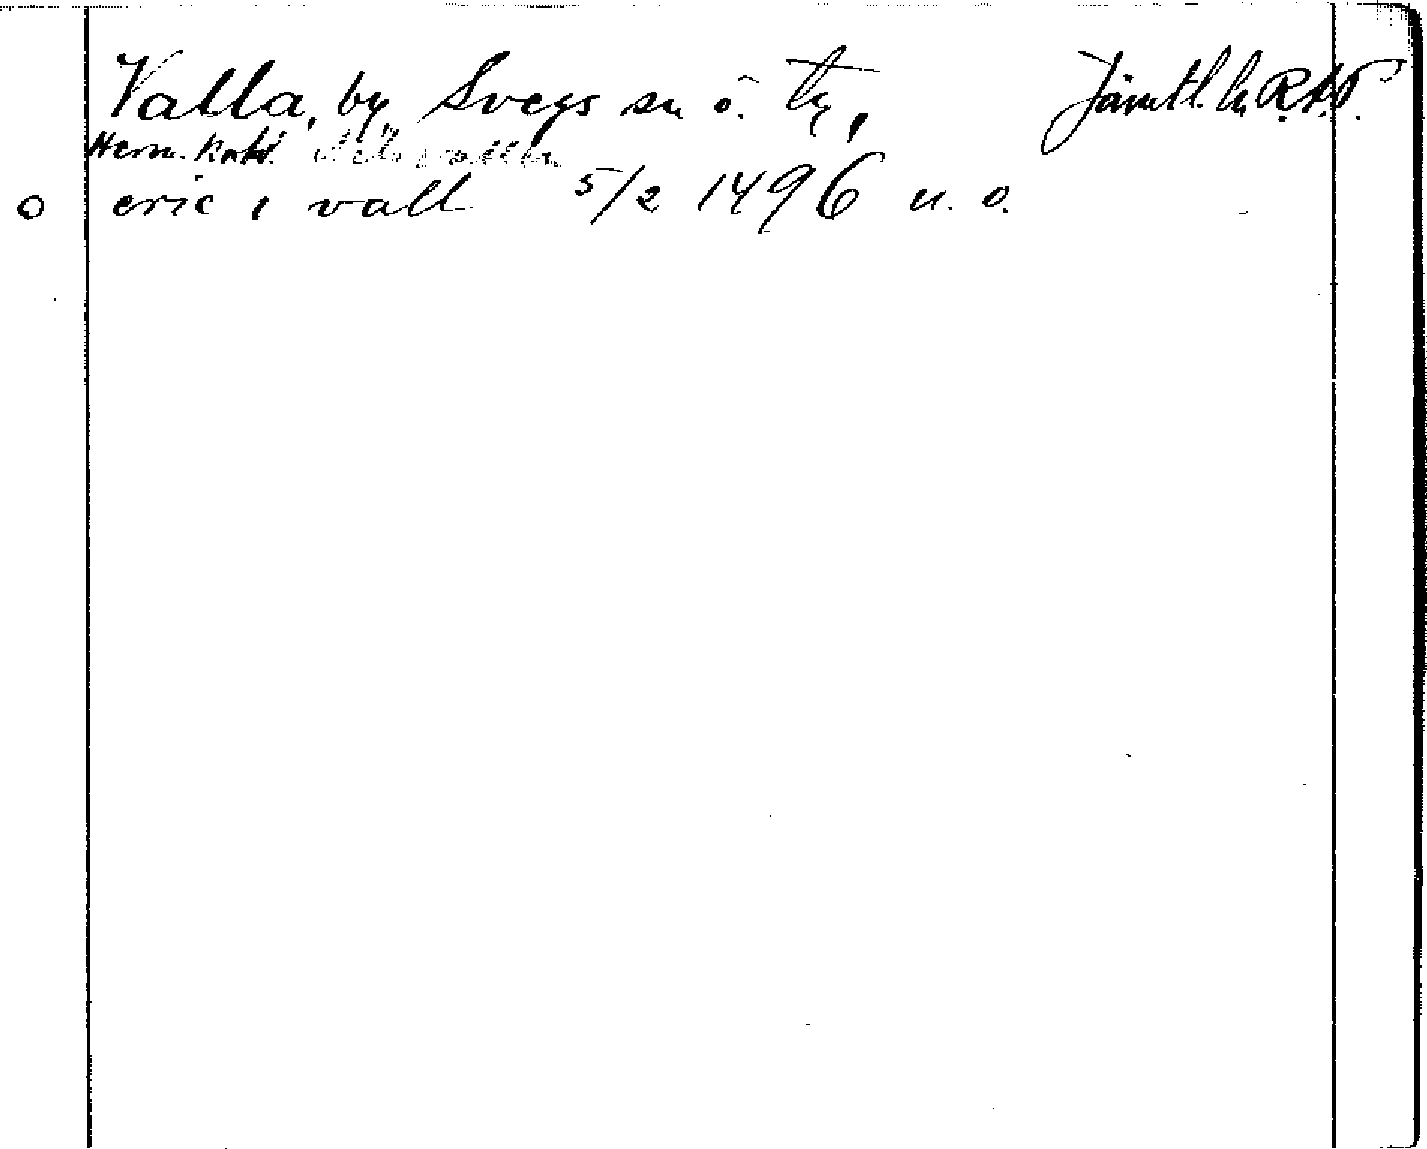 Valla, by, Svegs sn ö. tg, Jämtl. ln R.A.P.
Hern. kont.
o eric i vall 5/2 1496 u. o.